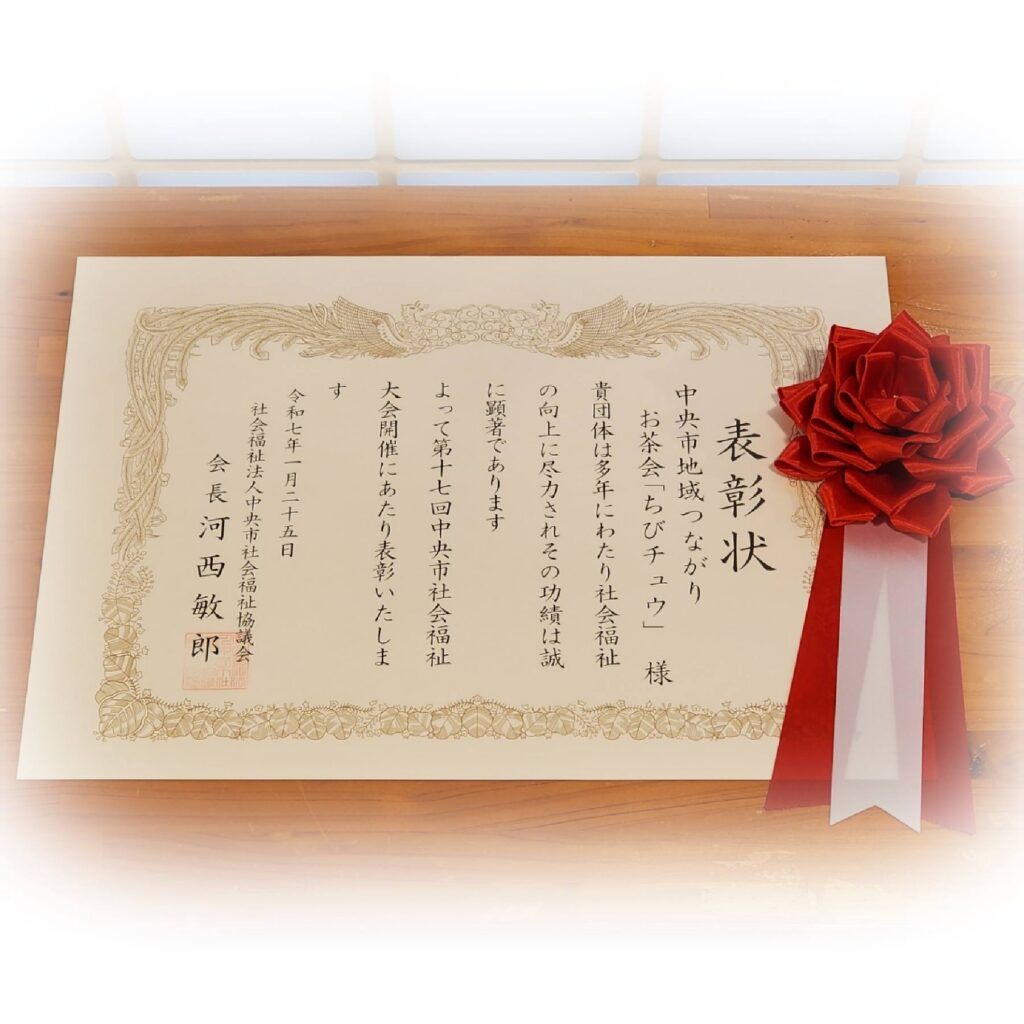 表彰状
中央市地域つながり
お茶会「ちびチュウ」 様
貴団体は多年にわたり社会福祉
の向上に尽力されその功績は誠
に顕著であります
よって第十七回中央市社会福祉
大会開催にあたり表彰いたしま
す
令和七年一月二十五日
社会福祉法人中央市社会福祉協議会
会長 河西敏郎